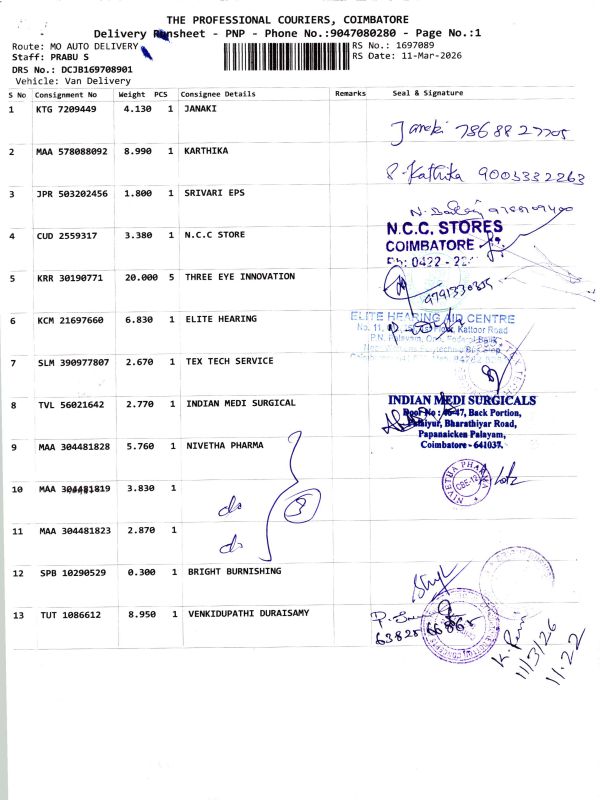 THE PROFESSIONAL COURIERS, COIMBATORE
Delivery Runsheet - PNP - Phone No.:9047080280 - Page No.:1
Route: MO AUTO DELIVERY
RS No.: 1697089
Staff: PRABU S
RS Date: 11-Mar-2026
DRS No.: DCJB169708901
Vehicle: Van Delivery
S No Consignment No Weight PCS Consignee Details Remarks Seal & Signature
1 KTG 7209449 4.130 1 JANAKI
Janaki
2 MAA 578088092 8.990 1 KARTHIKA
9005332263
3 JPR 503202456 1.800 1 SRIVARI EPS
4 CUD 2559317 3.380 1 N.C.C STORE
N.C.C. STORES
COIMBATORE
Ph: 0422 - 22
5 KRR 30190771 20.000 5 THREE EYE INNOVATION
6 KCM 21697660 6.830 1 ELITE HEARING
ELITE HEARING AID CENTRE
No. 11, Floor, Kattoor Road
P.N. Palayam,
7 SLM 390977807 2.670 1 TEX TECH SERVICE
8 TVL 56021642 2.770 1 INDIAN MEDI SURGICAL
INDIAN MEDI SURGICALS
Door No : 46-47, Back Portion,
Palaiyur, Bharathiyar Road,
Papanaicken Palayam,
Coimbatore - 641037.
9 MAA 304481828 5.760 1 NIVETHA PHARMA
NIVETHA PHARMA
CBE-12
10 MAA 304481819 3.830 1
do
3
11 MAA 304481823 2.870 1
do
12 SPB 10290529 0.300 1 BRIGHT BURNISHING
13 TUT 1086612 8.950 1 VENKIDUPATHI DURAISAMY
63825 66865
11/3/26
11.22